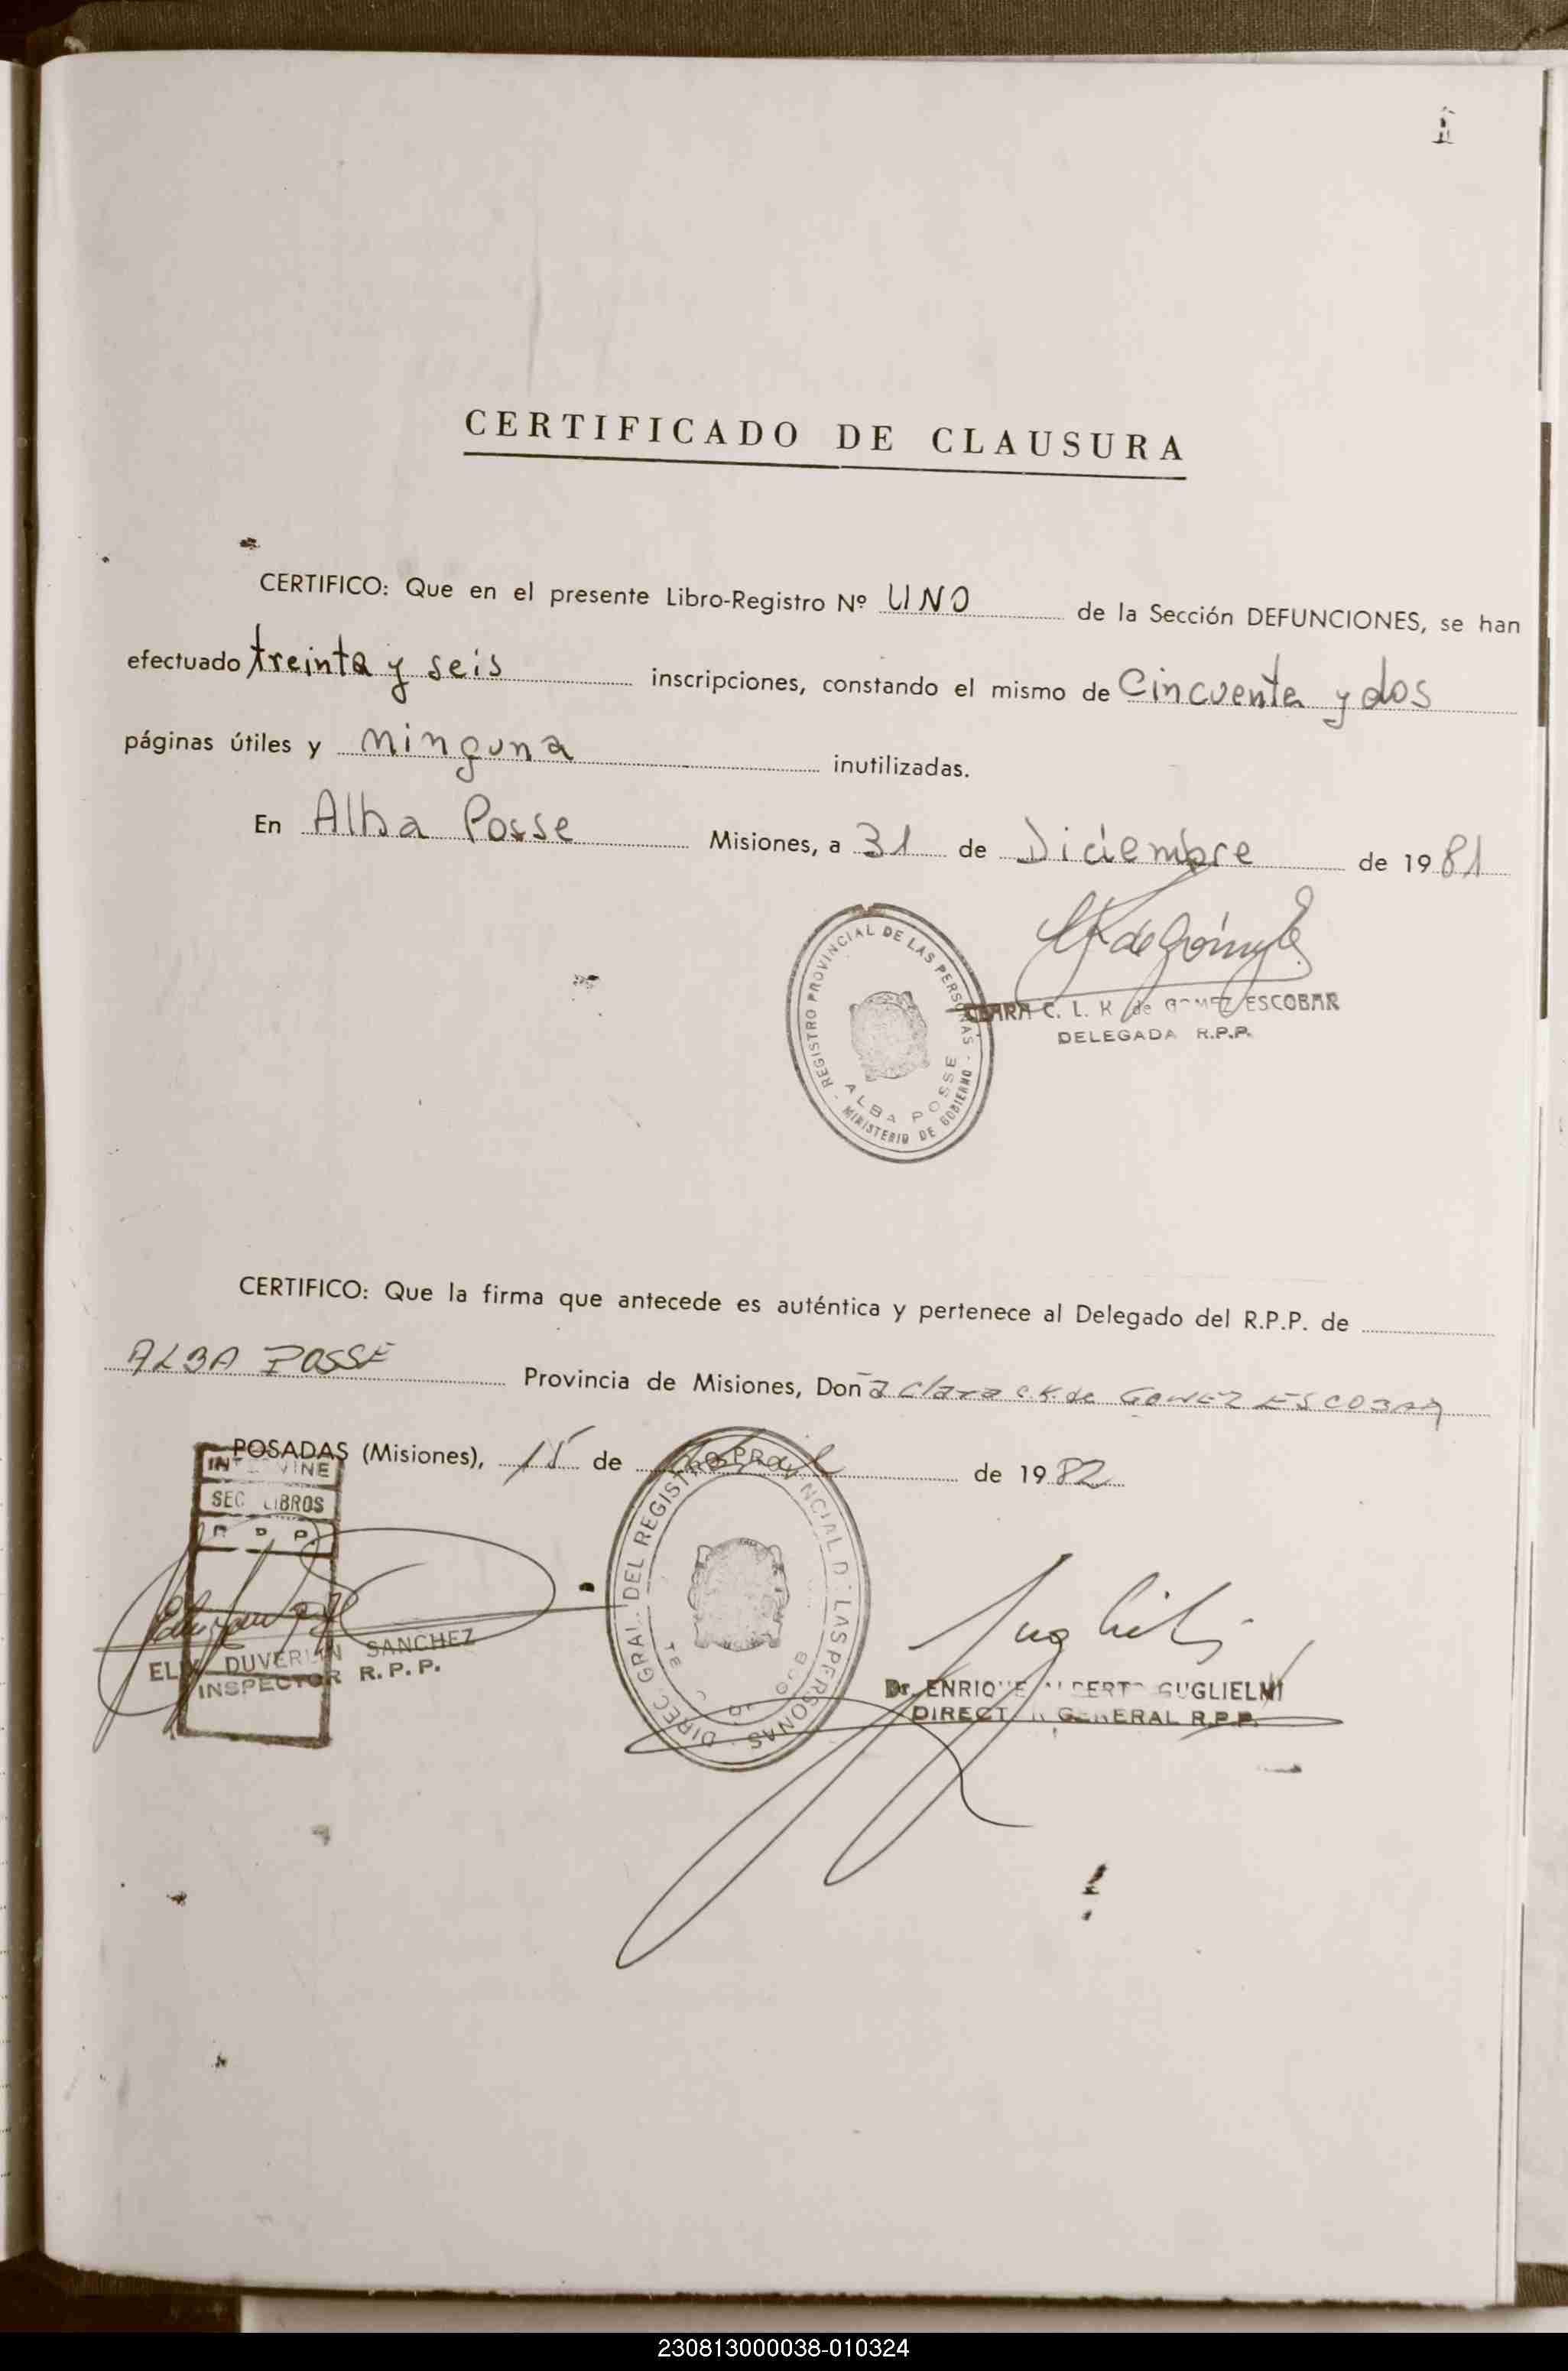 CERTIFICADO DE CLAUSURA
CERTIFICO: Que en el presente Libro-Registro Nº UNO de la Sección DEFUNCIONES, se han
efectuado treinta y seis inscripciones, constando el mismo de Cincuenta y dos
páginas útiles y ninguna inutilizadas.
En Alba Posse Misiones, a 31 de Diciembre de 1981
REGISTRO PROVINCIAL DE LAS PERSONAS - MINISTERIO DE GOBIERNO -
ALBA POSSE
CLARA C. L. K de GOMEZ ESCOBAR
DELEGADA R.P.P.
CERTIFICO: Que la firma que antecede es auténtica y pertenece al Delegado del R.P.P. de
ALBA POSSE Provincia de Misiones, Doña Clara C.K. de GOMEZ ESCOBAR
POSADAS (Misiones), 15 de de 1982
INTERVINE
SEC LIBROS
R P P
DIREC. GRAL. DEL REGISTRO PROVINCIAL DE LAS PERSONAS
DUVERLIN SANCHEZ
INSPECTOR R.P.P.
Dr. ENRIQUE ALBERTO GUGLIELMI
DIRECTOR GENERAL R.P.P.
230813000038-010324